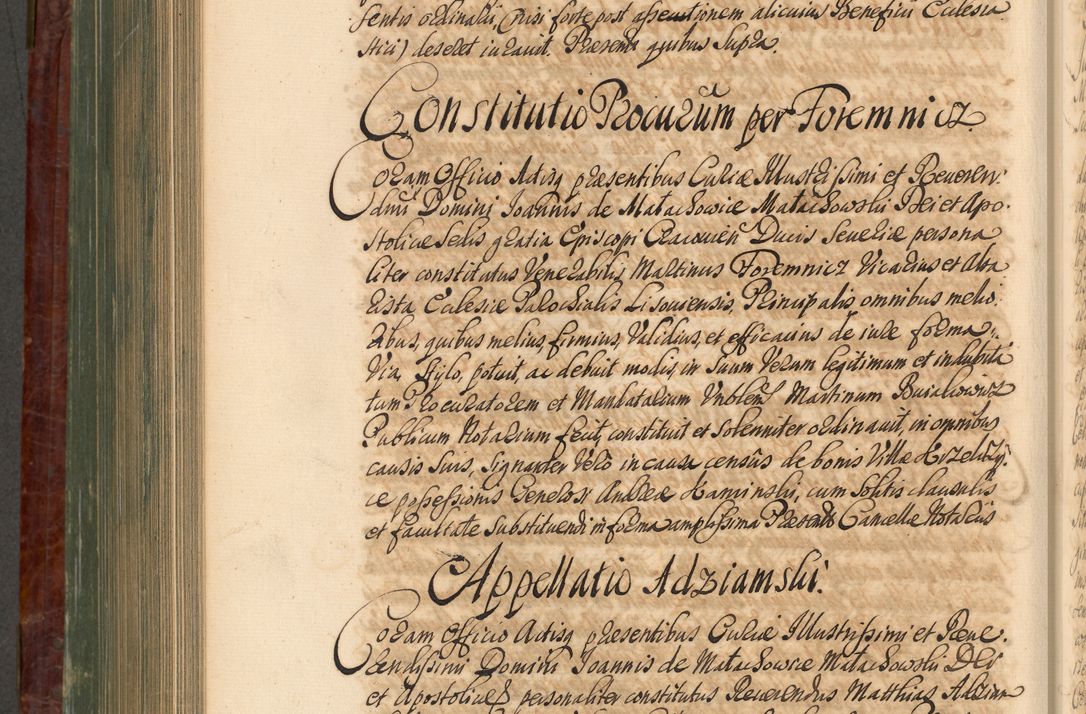 sentis ordinandi, (nisi forte post assecutionem alicuius Beneficii Ecclesia
stici) deseret iuravit. Præsent quibus supra.
Constitutio Procurũm per Foremnicz.
Coram Officio Actisq præsentibus Curiæ Illustrissimi et Reveren:
dmi Domini Joannis de Małachowice Małachowski Dei et Apo-
stolicæ Sedis gratia Episcopi Cracovieñ Ducis Severiæ persona
liter constitutus Venerabilis Martinus Foremnicz Vicarius et Alta
rista Ecclesiæ Parochialis Lisoviensis, Principalis omnibus melio
ribus, quibus melius, firmius, Validius, et efficacius de iure forma
Via, Stylo, potuit, ac debuit modis, in suum Verum legitimum et indubita
tum Procuratorem et Mandatarium Vnoblem Martinum Buiakowicz
Publicum Notarium fecit, constituit et solenniter ordinavit, in omnibus
causis suis, signanter Vero in causa censûs de bonis Villæ
ce possessionis Generosi Andreæ Kaminski, cum solitis clausulis
et facultate substituendi in forma amplissima Præsent Cancellæ Notariis
Appellatio Adziamski.
Coram Officio Actisq præsentibus Curiæ Illustrissimi et Reve-
rendissimi Domini Joannis de Małachowice Małachowski Dei
et Apostolicæ S personaliter constitutus Reverendus Matthias Adziam